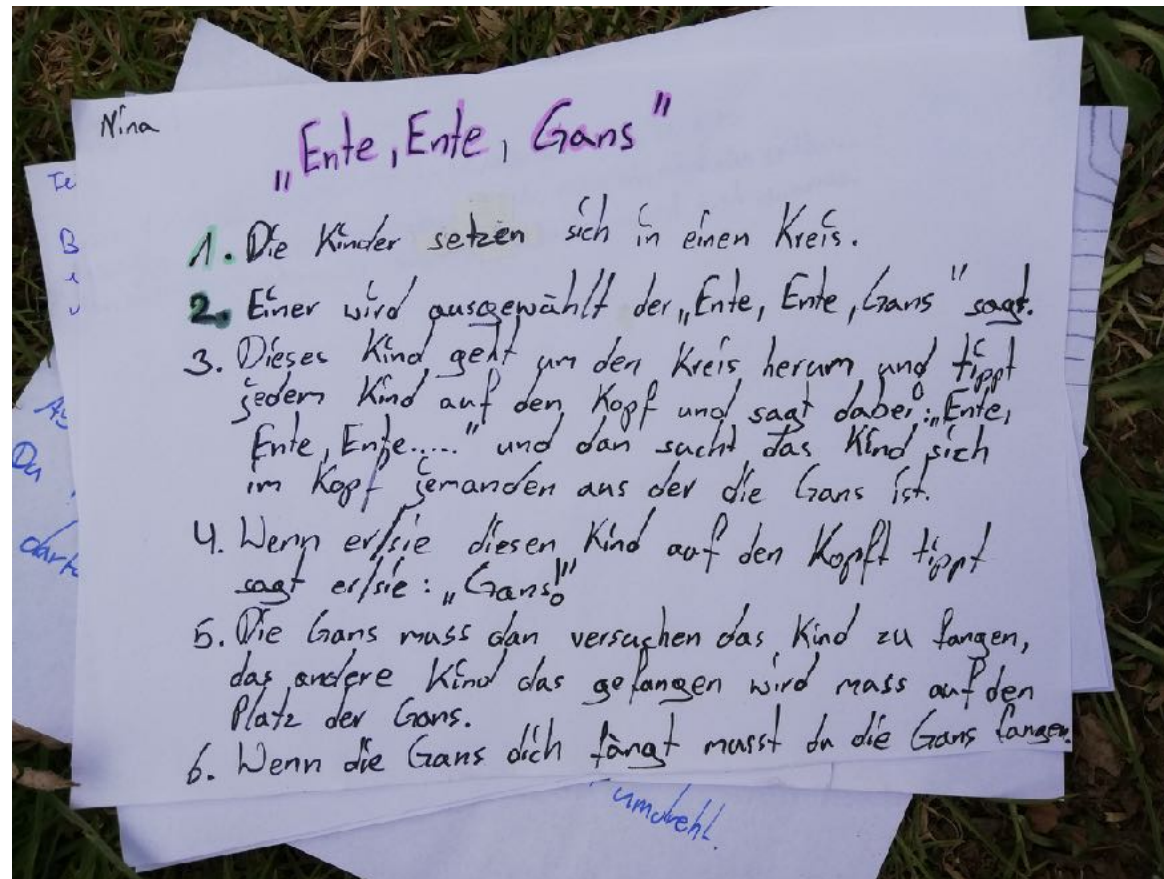 Nina
„Ente, Ente, Gans"
1. Die Kinder setzen sich in einen Kreis.
2. Einer wird ausgewählt der „Ente, Ente, Gans" sagt.
3. Dieses Kind geht um den Kreis herum und tippt
jedem Kind auf den Kopf und sagt dabei: „Ente,
Ente, Ente....." und dan sucht das Kind sich
im Kopf jemanden aus der die Gans ist.
4. Wenn er/sie diesen Kind auf den Kopft tippt
sagt er/sie: „Gans!"
5. Die Gans muss dan versuchen das Kind zu fangen,
das andere Kind das gefangen wird mass auf den
Platz der Gans.
6. Wenn die Gans dich fängt musst du die Gans fangen.
Te
B
Du
umdreht.